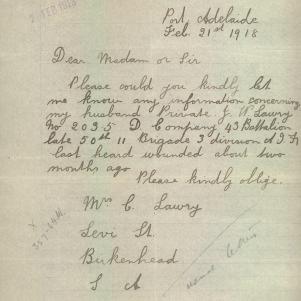 FEB 1918
Port Adelaide
Feb. 21st 1918
Dear Madam or Sir
Please could you kindly let
me know any information concerning
my husband Private J. W. Lawry
No 2035 D Company 43 Battalion
late 50th 11 Brigade 3 division A I F
last heard wounded about two
months ago
Please kindly oblige.
Mrs C. Lawry
Levi St.
Birkenhead.
S A